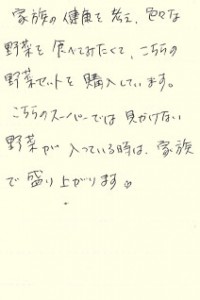 家族の健康を考え、色々な
野菜を食べてみたくて、こちらの
野菜セットを購入しています。
こちらのスーパーでは見かけない
野菜が入っている時は、家族
で盛り上がります